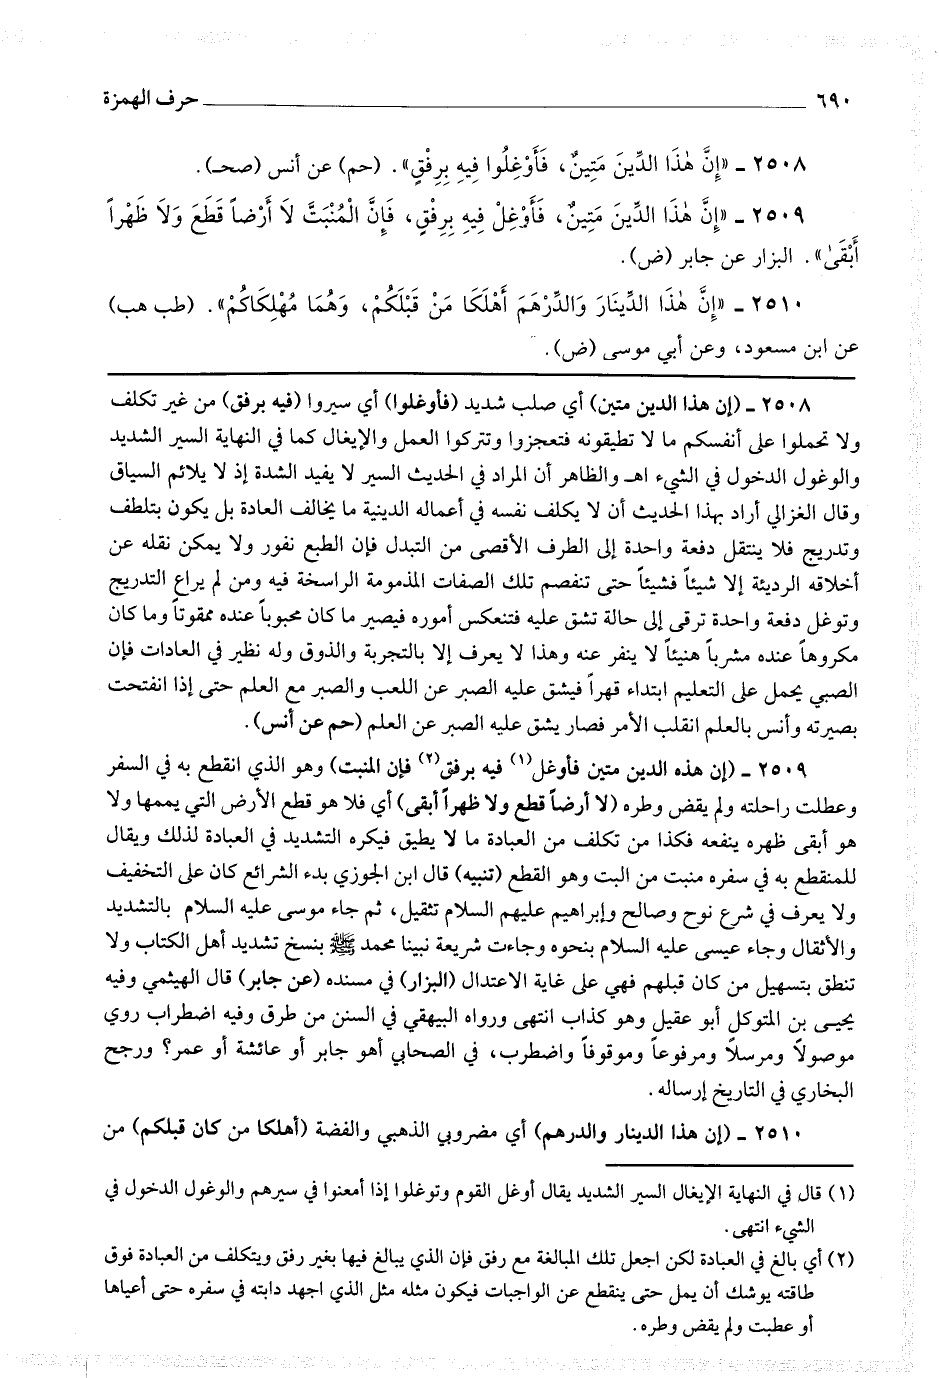 ٦٩٠ حرف الهمزة
٢٥٠٨ ـ «إِنَّ هٰذَا الدِّينَ مَتِينٌ، فَأَوْغِلُوا فِيهِ بِرِفْقٍ». (حم) عن أنس (صحـ).
٢٥٠٩ ـ «إِنَّ هٰذَا الدِّينَ مَتِينٌ، فَأَوْغِلْ فِيهِ بِرِفْقٍ، فَإِنَّ الْمُنْبَتَّ لَا أَرْضاً قَطَعَ وَلَا ظَهْراً
أَبْقَىٰ». البزار عن جابر (ض).
٢٥١٠ ـ «إِنَّ هٰذَا الدِّينَارَ وَالدِّرْهَمَ أَهْلَكَا مَنْ قَبْلَكُمْ، وَهُمَا مُهْلِكَاكُمْ». (طب هب)
عن ابن مسعود، وعن أبي موسى (ض).
٢٥٠٨ ـ (إن هذا الدين متين) أي صلب شديد (فأوغلوا) أي سيروا (فيه برفق) من غير تكلف
ولا تحملوا على أنفسكم ما لا تطيقونه فتعجزوا وتتركوا العمل والإيغال كما في النهاية السير الشديد
والوغول الدخول في الشيء اهـ والظاهر أن المراد في الحديث السير لا يفيد الشدة إذ لا يلائم السياق
وقال الغزالي أراد بهذا الحديث أن لا يكلف نفسه في أعماله الدينية ما يخالف العادة بل يكون بتلطف
وتدريج فلا ينتقل دفعة واحدة إلى الطرف الأقصى من التبدل فإن الطبع نفور ولا يمكن نقله عن
أخلاقه الرديئة إلا شيئاً فشيئاً حتى تنفصم تلك الصفات المذمومة الراسخة فيه ومن لم يراع التدريج
وتوغل دفعة واحدة ترقى إلى حالة تشق عليه فتنعكس أموره فيصير ما كان محبوباً عنده ممقوتاً وما كان
مكروهاً عنده مشرباً هنيئاً لا ينفر عنه وهذا لا يعرف إلا بالتجربة والذوق وله نظير في العادات فإن
الصبي يحمل على التعليم ابتداء قهراً فيشق عليه الصبر عن اللعب والصبر مع العلم حتى إذا انفتحت
بصيرته وأنس بالعلم انقلب الأمر فصار يشق عليه الصبر عن العلم (حم عن أنس).
٢٥٠٩ ـ (إن هذه الدين متين فأوغل(١) فيه برفق(٢) فإن المنبت) وهو الذي انقطع به في السفر
وعطلت راحلته ولم يقض وطره (لا أرضاً قطع ولا ظهراً أبقى) أي فلا هو قطع الأرض التي يممها ولا
هو أبقى ظهره ينفعه فكذا من تكلف من العبادة ما لا يطيق فيكره التشديد في العبادة لذلك ويقال
للمنقطع به في سفره منبت من البت وهو القطع (تنبيه) قال ابن الجوزي بدء الشرائع كان على التخفيف
ولا يعرف في شرع نوح وصالح وإبراهيم عليهم السلام تثقيل، ثم جاء موسى عليه السلام بالتشديد
والأثقال وجاء عيسى عليه السلام بنحوه وجاءت شريعة نبينا محمد ﷺ بنسخ تشديد أهل الكتاب ولا
تنطق بتسهيل من كان قبلهم فهي على غاية الاعتدال (البزار) في مسنده (عن جابر) قال الهيثمي وفيه
يحيـى بن المتوكل أبو عقيل وهو كذاب انتهى ورواه البيهقي في السنن من طرق وفيه اضطراب روي
موصولاً ومرسلاً ومرفوعاً وموقوفاً واضطرب، في الصحابي أهو جابر أو عائشة أو عمر؟ ورجح
البخاري في التاريخ إرساله.
٢٥١٠ ـ (إن هذا الدينار والدرهم) أي مضروبي الذهبي والفضة (أهلكا من كان قبلكم) من
(١) قال في النهاية الإيغال السير الشديد يقال أوغل القوم وتوغلوا إذا أمعنوا في سيرهم والوغول الدخول في
الشيء انتهى.
(٢) أي بالغ في العبادة لكن اجعل تلك المبالغة مع رفق فإن الذي يبالغ فيها بغير رفق ويتكلف من العبادة فوق
طاقته يوشك أن يمل حتى ينقطع عن الواجبات فيكون مثله مثل الذي اجهد دابته في سفره حتى أعياها
أو عطبت ولم يقض وطره.